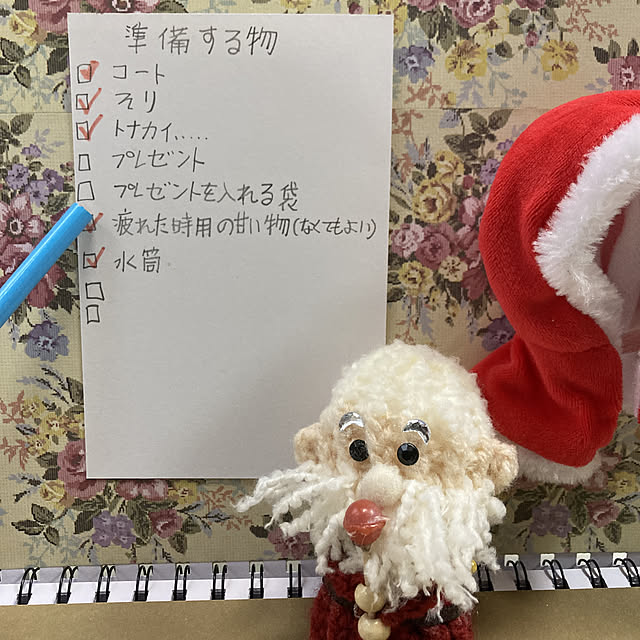 準備する物
コート
そり
トナカイ、....
プレゼント
プレゼントを入れる袋
疲れた時用の甘い物(なくてもよい)
水筒